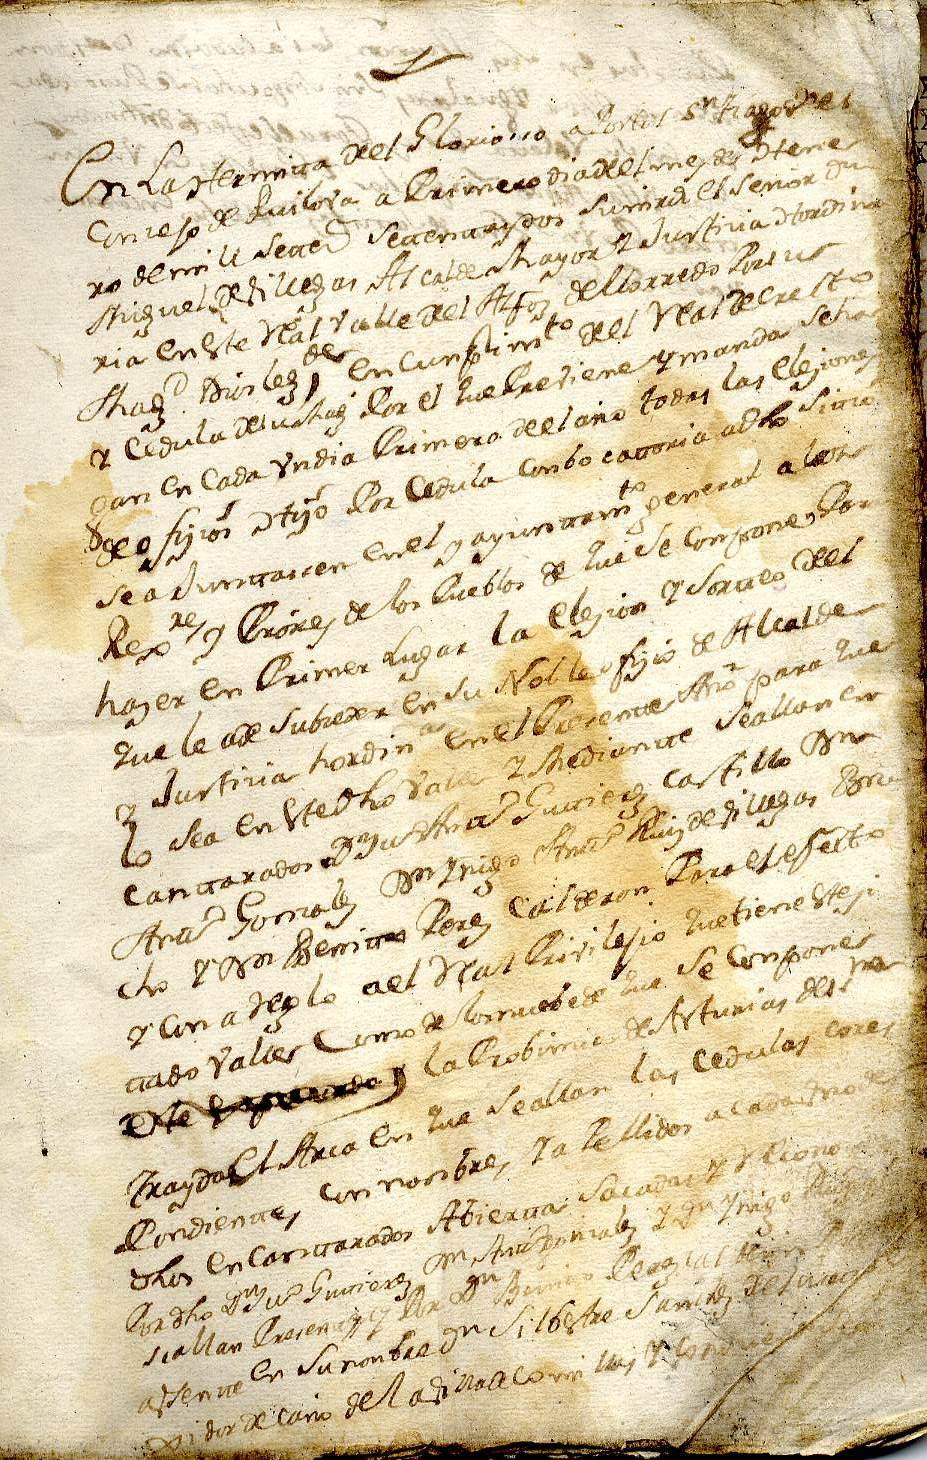 En La Hermita del Glorioso apostol Sn Tiago del
Concejo de Ruilova a Primero dia del mes de Hene
ro de mill settecs settenta y dos su mrd el señor Dn
Miguel de Villegas Alcalde Mayor y Justicia Hordina
ria en este Rl Valle del Alfoz de Lloredo por su
Magd Dios le gde en cumplimto del Real Decreto
y Cedula de su Magd por el que Previene y manda se ha
gan en Cada Un dia Primero del año todas las Elejiones
de ofijios Hijo por Cedula combocatoria a dho sitio
se a Juntasen en el y ayuntamto general a los
Rexres y Prores de los Pueblos de que se compone Para
hazer en Primer Lugar la Elejion y Sorteo del
que le a de subceder en su Noble ofijio de Alcalde
y Justicia hordina en el Presente Año para que
lo sea en Este dho Valle y Mediante se allan en
cantarados Dn Jun Antto Gutierrez Castillo Dn
Antto Gonzalez Dn Ynigo Antto Ruiz de Villegas
cho y Dn Benitto Perez Calderon Para el efecto
y con areglo al Real Privilejio que tiene este ci
tado Valle Como de los nuebe de que se compone
la Probincia de Asturias de
Trayda El Arca en que se allan las Cedulas cores
Pondientes con nombres y apellidos a cada uno
dhos encantarados Abierta sacadas y Recono
Por dho Dn Jun Gutierrez Dn Antto Gonzalez y Dn Ynigo Ruiz
se allan Presentes y Por Dn Benitto Perez Calderon
ausente en su nombre Dn Silbestre Sanchez de
de la Villa de Comillas y